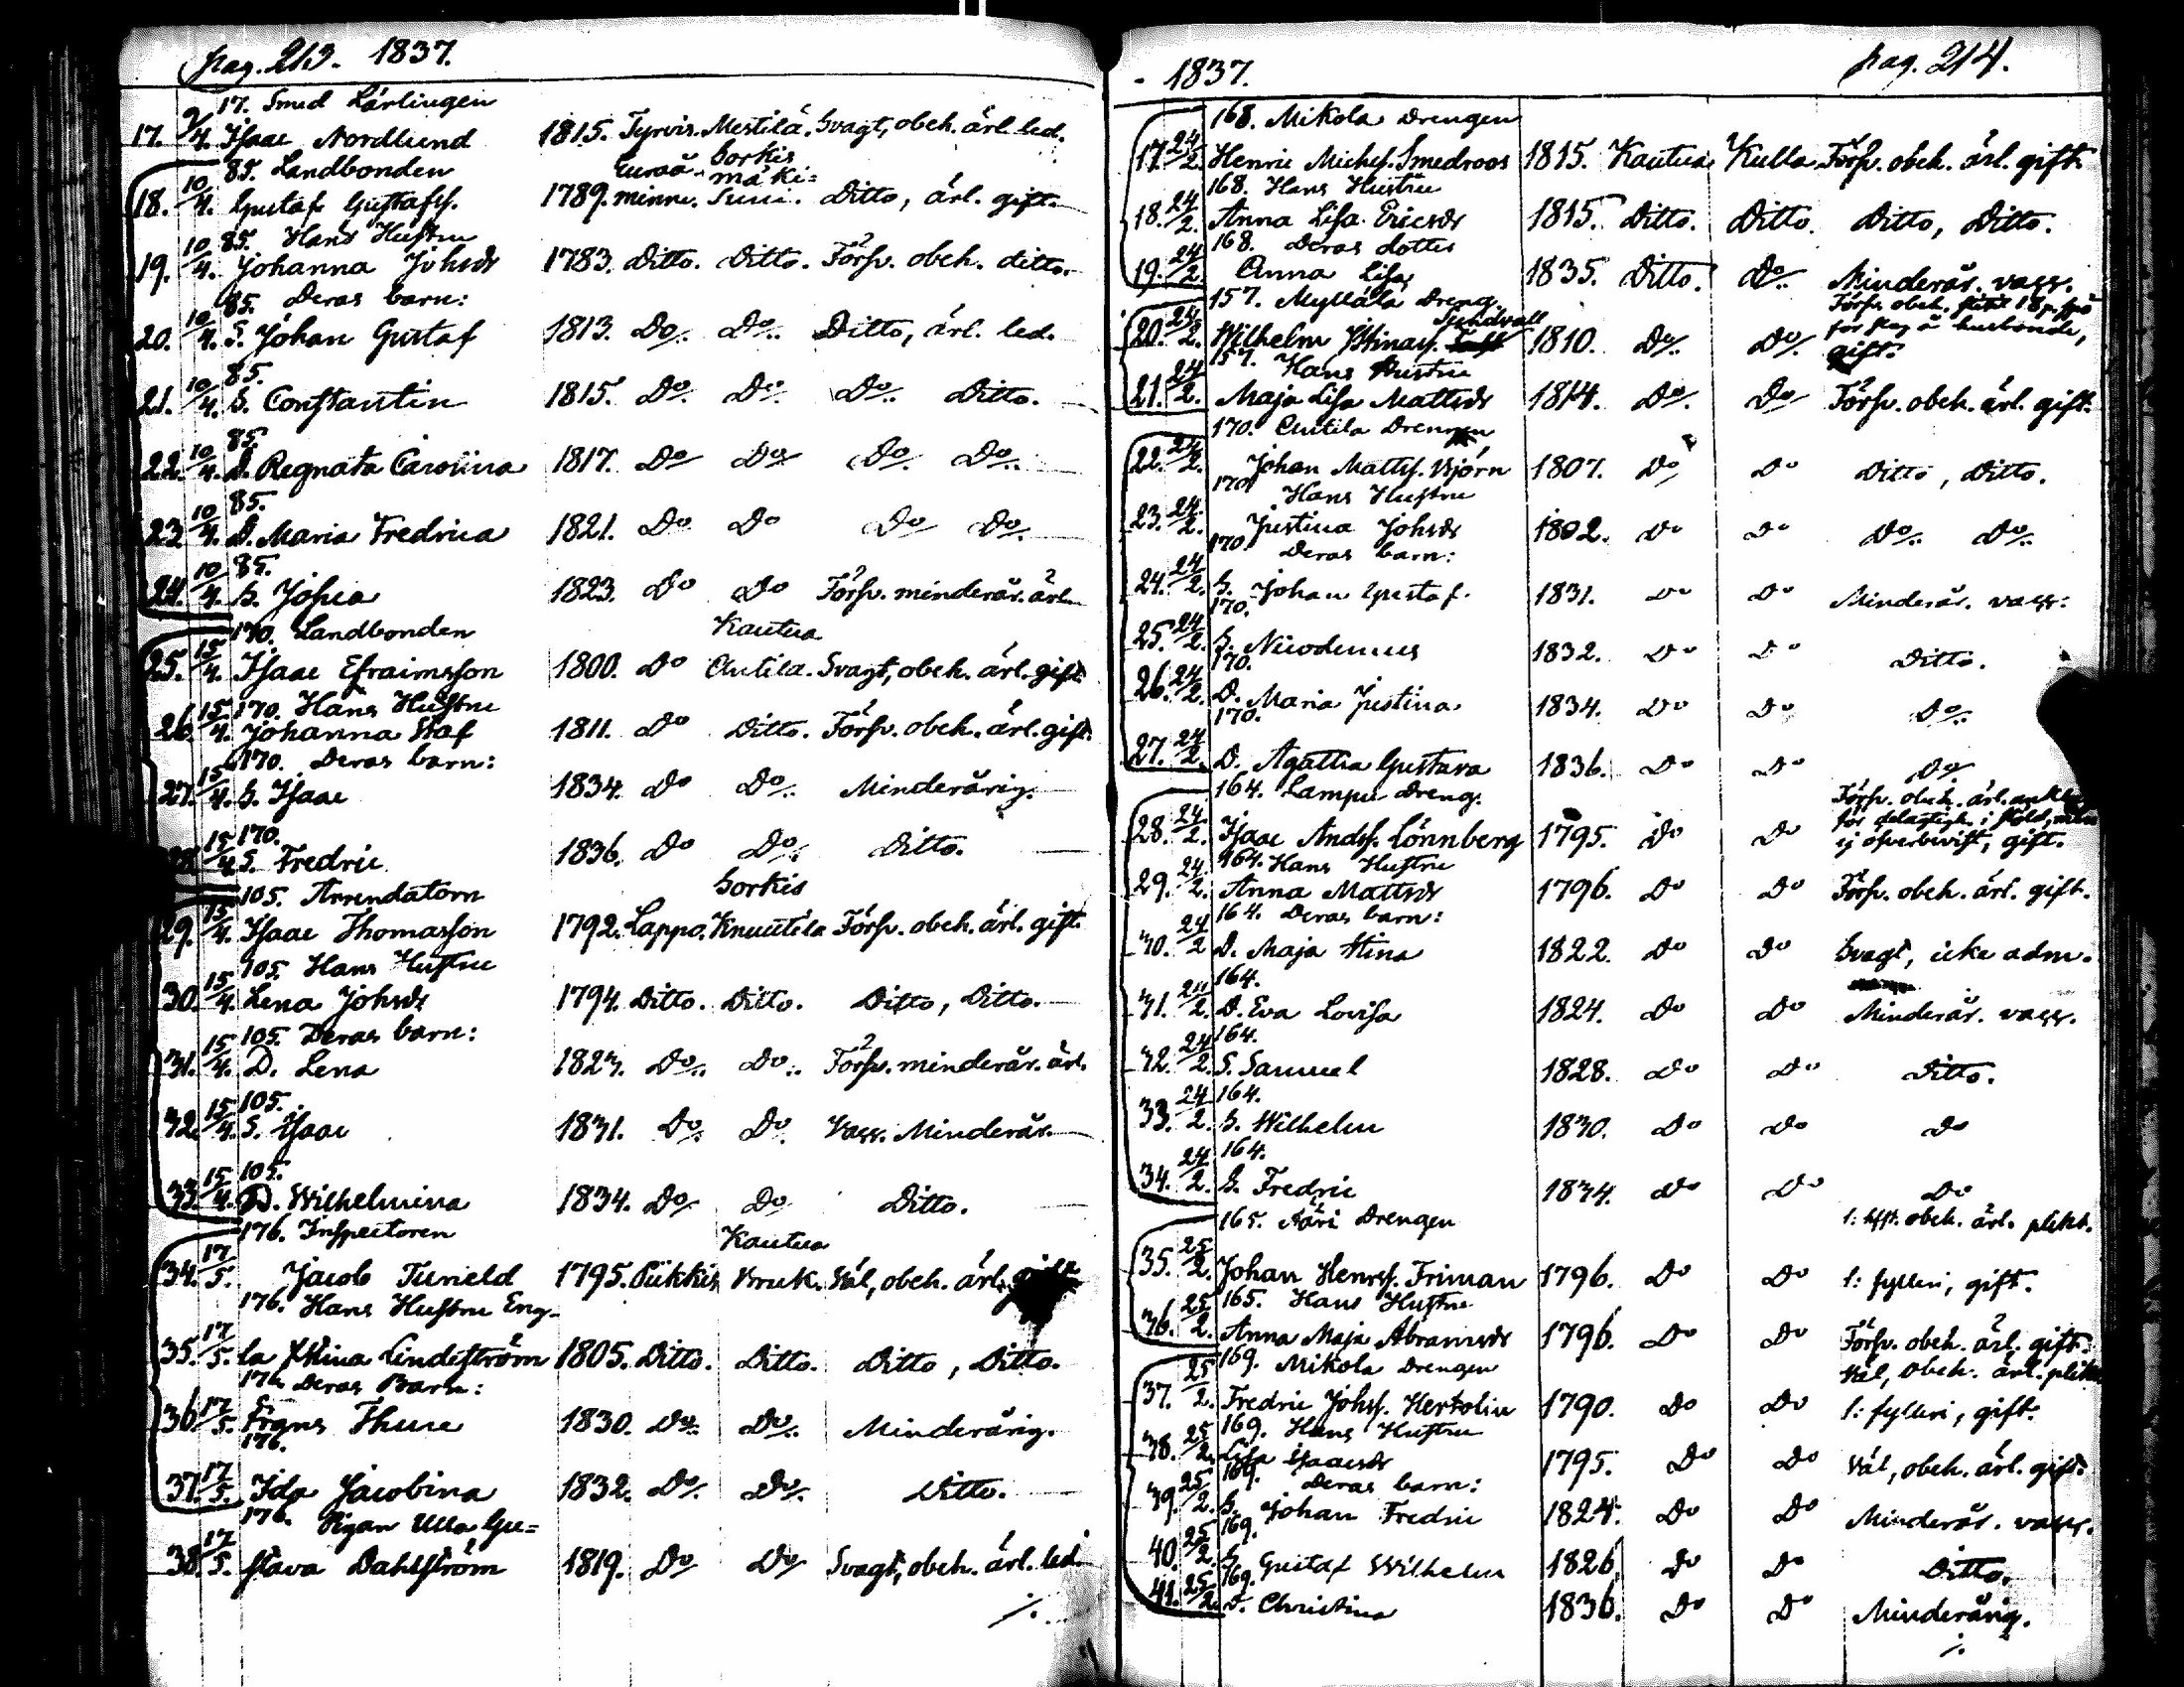 pag. 213. 1837.
17. Smed Lärlingen
17. 9/4. Isaac Nordlund 1815. Tyrvis. Mestilä. Svagt, obeh. ärl. led.
85. Landbonden Euraå- Sorkis mäki=
18. 10/4. Gustaf Gustafss. 1789. minne. Suni. Ditto, ärl. gift.
85. Hans Hustru
19. 10/4. Johanna Johsdr 1783. Ditto. Ditto. Försv. obeh. ditto.
85. Deras barn:
20. 10/4. S. Johan Gustaf 1813. Do/. Do/. Ditto, ärl. led.
85.
21. 10/4. S. Constantin 1815. Do/. Do/. Do/. Ditto.
85.
22. 10/4. D. Regnata Carolina 1817. Do/ Do/ Do/. Do/.
85.
23. 10/4. D. Maria Fredrica 1821. Do Do Do/ Do/.
85.
24. 10/4. S. Josua 1823. Do Do Försv. minderår. ärl.
170. Landbonden Kautua
25. 15/4. Isaac Efraimsson 1800. Do Antila. Svagt, obeh. ärl. gift.
170. Hans Hustru
26. 15/4. Johanna Staf 1811. Do Ditto. Försv. obeh. ärl. gift.
170. Deras barn:
27. 15/4. S. Isaac 1834. Do Do/. Minderårig.
170.
28. 15/4. S. Fredric 1836. Do Do/. Ditto.
105. Arrendatorn Sorkis
29. 15/4. Isaac Thomasson 1792. Lappo. Knuutila Försv. obeh. ärl. gift.
105. Hans Hustru
30. 15/4. Lena Johsdr 1794. Ditto. Ditto. Ditto, Ditto.
105. Deras barn:
31. 15/4. D. Lena 1823. Do/. Do/. Försv. minderår. ärl.
105.
32. 15/4. S. Isaac 1831. Do/. Do/. Vacc. Minderår.
105.
33. 15/4. D. Wilhelmina 1834. Do/ Do/ Ditto.
176. Inspectoren Kautua
34. 17/5. Jacob Tuneld 1795. Piikkis Bruk. Väl, obeh. ärl. gift.
176. Hans Hustru Eng-
35. 17/5. la Stina Lindeström 1805. Ditto. Ditto. Ditto, Ditto.
176. Deras Barn:
36. 17/5. S. Frans Thure 1830. Do/. Do/. Minderårig.
176.
37. 17/5. Ida Jacobina 1832. Do/. Do/. Ditto.
176. Pigan Ulla Gu=
38. 17/5. stava Dahlström 1819. Do/ Do/ Svagt, obeh. ärl. led.
/.
- 1837. pag. 214.
168. Mikola Drengen
17. 24/2. Henric Michss. Smedroos 1815. Kautua Kulla Försv. obeh. ärl. gift.
168. Hans Hustru
18. 24/2. Anna Lisa Ericsdr 1815. Ditto. Ditto. Ditto, Ditto.
168. Deras dotter
19. 24/2. Anna Lisa 1835. Ditto. Do/. Minderår. vacc.
157. Myllälä Dreng. Sundvall Försv. obeh.
20. 24/2. Wilhelm Stinass. 1810. Do/. Do/. för husbonde, gift.
157. Hans Hustru
21. 24/2. Maja Lisa Mattsdr 1814. Do/. Do/ Försv. obeh. ärl. gift.
170. Antila Drengen
22. 24/2. Johan Mattss. Björn 1807. Do/ Do Ditto, Ditto.
170. Hans Hustru
23. 24/2. Justina Johsdr 1802. Do Do Do/. Do/.
170. Deras barn:
24. 24/2. S. Johan Gustaf. 1831. Do Do Minderår. vacc:
170.
25. 24/2. S. Nicodemus 1832. Do Do Ditto.
170.
26. 24/2. D. Maria Justina 1834. Do Do Do/.
170.
27. 24/2. D. Agatha Gustava 1836. Do Do Do/
164. Lampu Dreng. Försv. obeh. ärl.
28. 24/2. Isaac Andss. Lönnberg 1795. Do Do för delagtigh. i stöld, men ej öfverbevist, gift.
164. Hans Hustru
29. 24/2. Anna Mattsdr 1796. Do Do Försv. obeh. ärl. gift.
164. Deras barn:
30. 24/2 D. Maja Stina 1822. Do Do Svagt, icke adm.
164.
31. 24/2. D. Eva Lovisa 1824. Do Do Minderår. vacc.
164.
32. 24/2. S. Samuel 1828. Do Do Ditto.
164.
33. 24/2. S. Wilhelm 1830. Do Do Do
164.
34. 24/2. S. Fredric 1834. Do Do Do
165. Ääri Drengen obeh. ärl. plikt.
35. 25/2. Johan Henrss. Friman 1796. Do Do 1: fylleri, gift.
165. Hans Hustru
36. 25/2. Anna Maja Abramsdr 1796. Do Do Försv. obeh. ärl. gift.
169. Mikola Drengen Väl, obeh. ärl. plikt.
37. 25/2. Fredric Johss. Hertolin 1790. Do Do 1: fylleri, gift.
169. Hans Hustru
38. 25/2. Lisa Isaacsdr 1795. Do Do Väl, obeh. ärl. gift.
169. Deras barn:
39. 25/2. S. Johan Fredric 1824. Do Do Minderår. vacc.
169.
40. 25/2. S. Gustaf Wilhelm 1826. Do Do Ditto.
169.
41. 25/2. D. Christina 1836. Do Do Minderårig.
/.